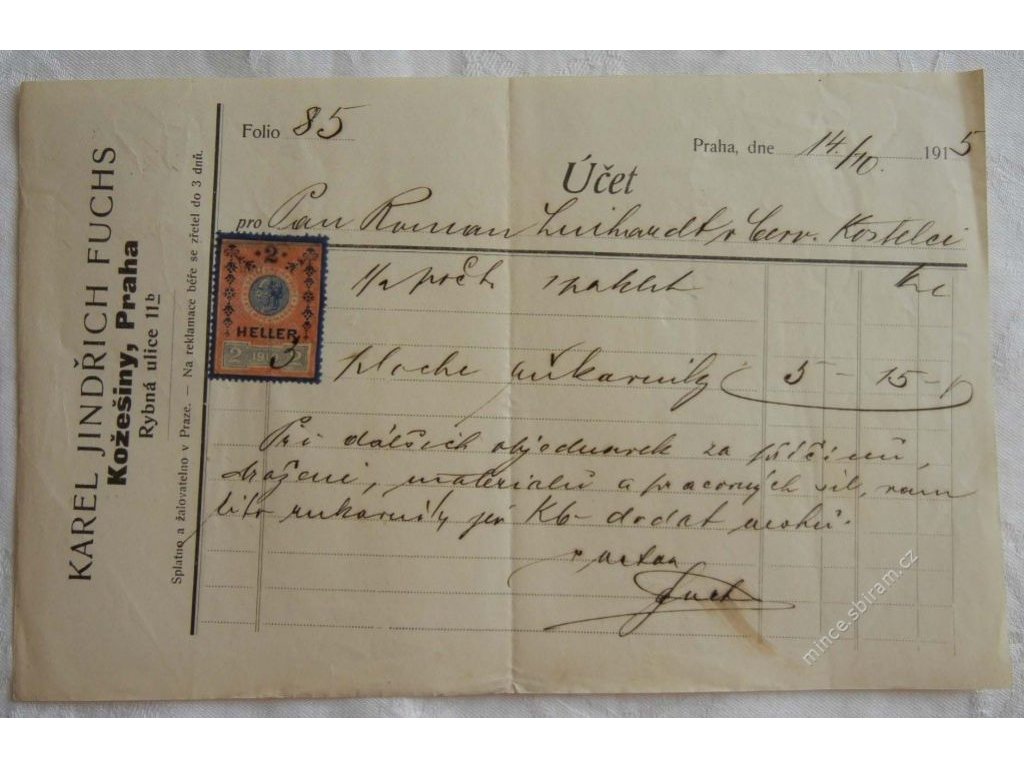 KAREL JINDŘICH FUCHS
Kožešiny, Praha
Rybná ulice 11b
Splatno a žalovatelno v Praze. — Na reklamace béře se zřetel do 3 dnů.
Folio 85
Praha, dne 14./10. 1915
Účet
pro Pan Roman v Červ. Kostelci
2
HELLER
2 191 2
3 ploché 5 - 15 -
Při dalších objednávek za příčinou
dražení, materialů a pracovných sil, vam
tito rukavníky po K6- dodat mohu.
v úctou
Fuchs
mince.sbiram.cz